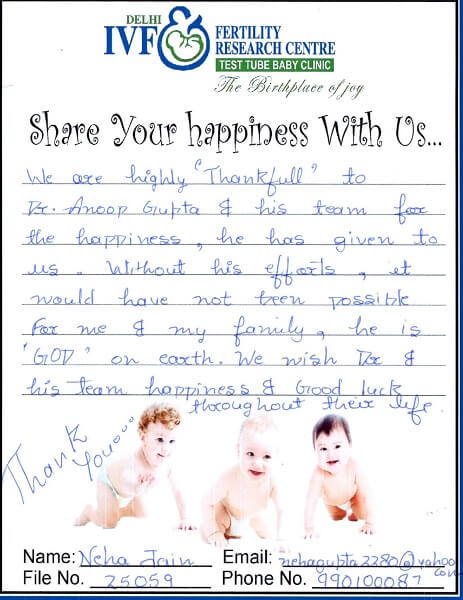 DELHI
IVF & FERTILITY
RESEARCH CENTRE
TEST TUBE BABY CLINIC
The Birthplace of joy
Share Your happiness With Us...
We are highly "Thankfull" to
Dr. Anoop Gupta & his team for
the happiness, he has given to
us. Without his efforts, it
would have not been possible
For me & my family, he is
"GOD" on earth. We wish Dr &
his team happiness & Good luck
throughout their life.
Thank
You...
Name: Neha Jain Email: nehagupta2280@yahoo.com
File No. 25059 Phone No. 990100087